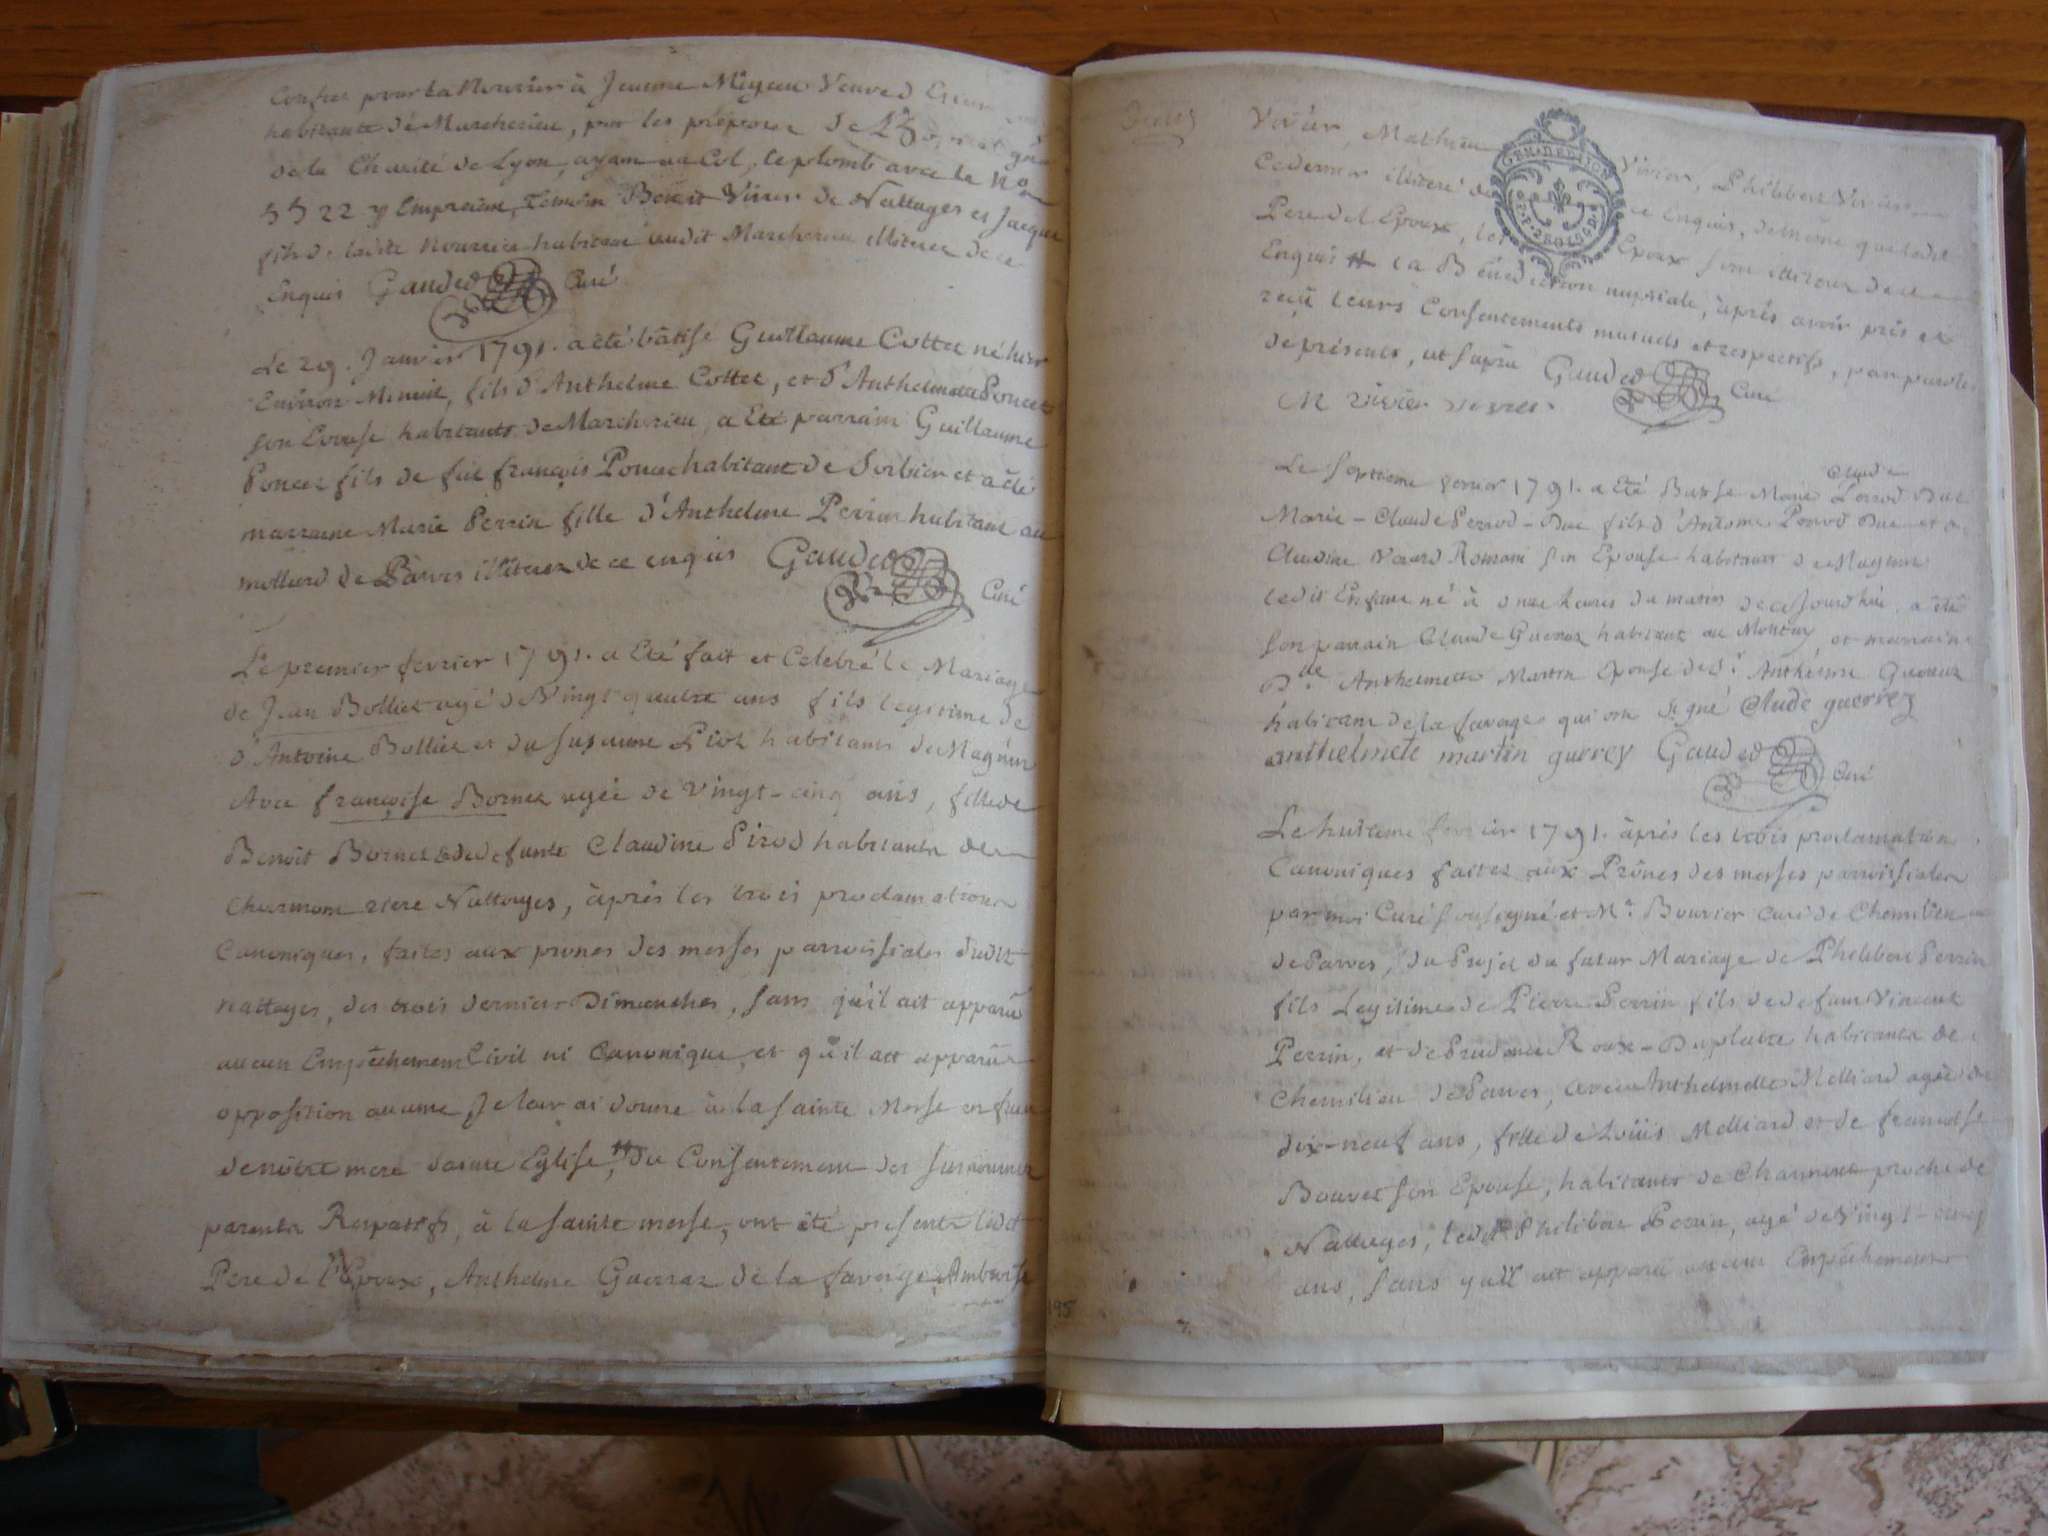 Confiée pour la Nourrir à Jeanne Migeau Veuve d
habitante de Marcherieu, par les préposés de
de la Charité de Lyon, ayant au Col, le plomb avec le N°
5522 y Empreint, Temoin Benoit Vivier de Nattages et Jacque
fils de ladite Nourrice habitant audit Marcherieu illitere de ce
Enquis Gauded Curé
Le 29. Janvier 1791. a été bâtisé Guillaume Cottet né hier
Environ Minuit, fils d'Anthelme Cottet, et d'Anthelmette Poncet
son Epouse habitants de Marcherieu, a Eté parrain Guillaume
Poncet fils de feu françois Poncet habitant de Sorbier et a été
marraine Marie Perrin fille d'Anthelme Perrin habitant au
molliard de Parves illiterez de ce enquis Gauded
Curé
Le premier fevrier 1791. a Eté fait et Celebré le Mariage
de Jean Bolliet agé de Vingt quatre ans fils legitime de
d'Antoine Bolliet et de Susanne Picot habitants de Magnin
Avec françoise Bornet agée de Vingt-cinq ans, fille de
Benoit Bornet & de defunte Claudine Pirod habitants de
Charmont riere Nattages, àprés les trois proclamations
Canoniques, faites aux prones des messes parroissiales dudit
nattages, des trois derniers Dimanches, sans qu'il ait apparû
aucun Empêchement Civil ni Canonique, et qu'il ait apparû
opposition aucune, Je leur ai donné à la sainte Messe en face
de nôtre mere sainte Eglise, du Consentement des susnommez
parents Respectifs, à la sainte messe, ont été presents ledit
Pere de l'Epoux, Anthelme Guerraz de la faverge, Ambroise
Vivier, Mathieu Vivier, Philibert Vivier
Ce dernier illiteré de ce Enquis, de même que ledit
Pere de l'Epoux, les Epoux sont illiterez de ce
Enquis la Bénédiction nuptiale, àprés avoir pris et
reçû leurs Consentements mutuels et respectifs, par paroles
de présents, ut suprà Gauded Curé
M vivier
Claude
Le septieme fevrier 1791. a Eté Batisé Marie Perrod Duc
Marie-Claude Perrod-Duc fils d'Antoine Perrod Duc et de
Claudine Romain son Epouse habitants de Magnin
ledit Enfant né à onze heures du matin de ce Jourd'hui, a été
son parrain Claude Guerraz habitant au Montuy et marraine
Dlle Anthelmette Martin Epouse de Sr Anthelme Guerraz
habitant de la faverge qui ont signé Claude guerrez
anthelmete martin guerrey Gauded
Curé
Le huitieme fevrier 1791. àprés les trois proclamations
Canoniques faites aux Prônes des messes parroissiales
par moi Curé soussigné et Mr. Bouvier Curé de Chemilieu
de Parves, du Projet du futur Mariage de Philibert Perrin
fils Legitime de Pierre Perrin fils de defunt Vincent
Perrin, et de Prudence Roux-Duplatre habitants de
Chemilieu de Parves, avec Anthelmette Molliard agée de
dix-neuf ans, fille de Loüis Molliard et de francoise
Bouvet son Epouse, habitants de Charmont proche de
Nattages, ledit Philibert Perrin, agé de Vingt-cinq
ans, sans qu'il ait apparû aucun Empêchement
195